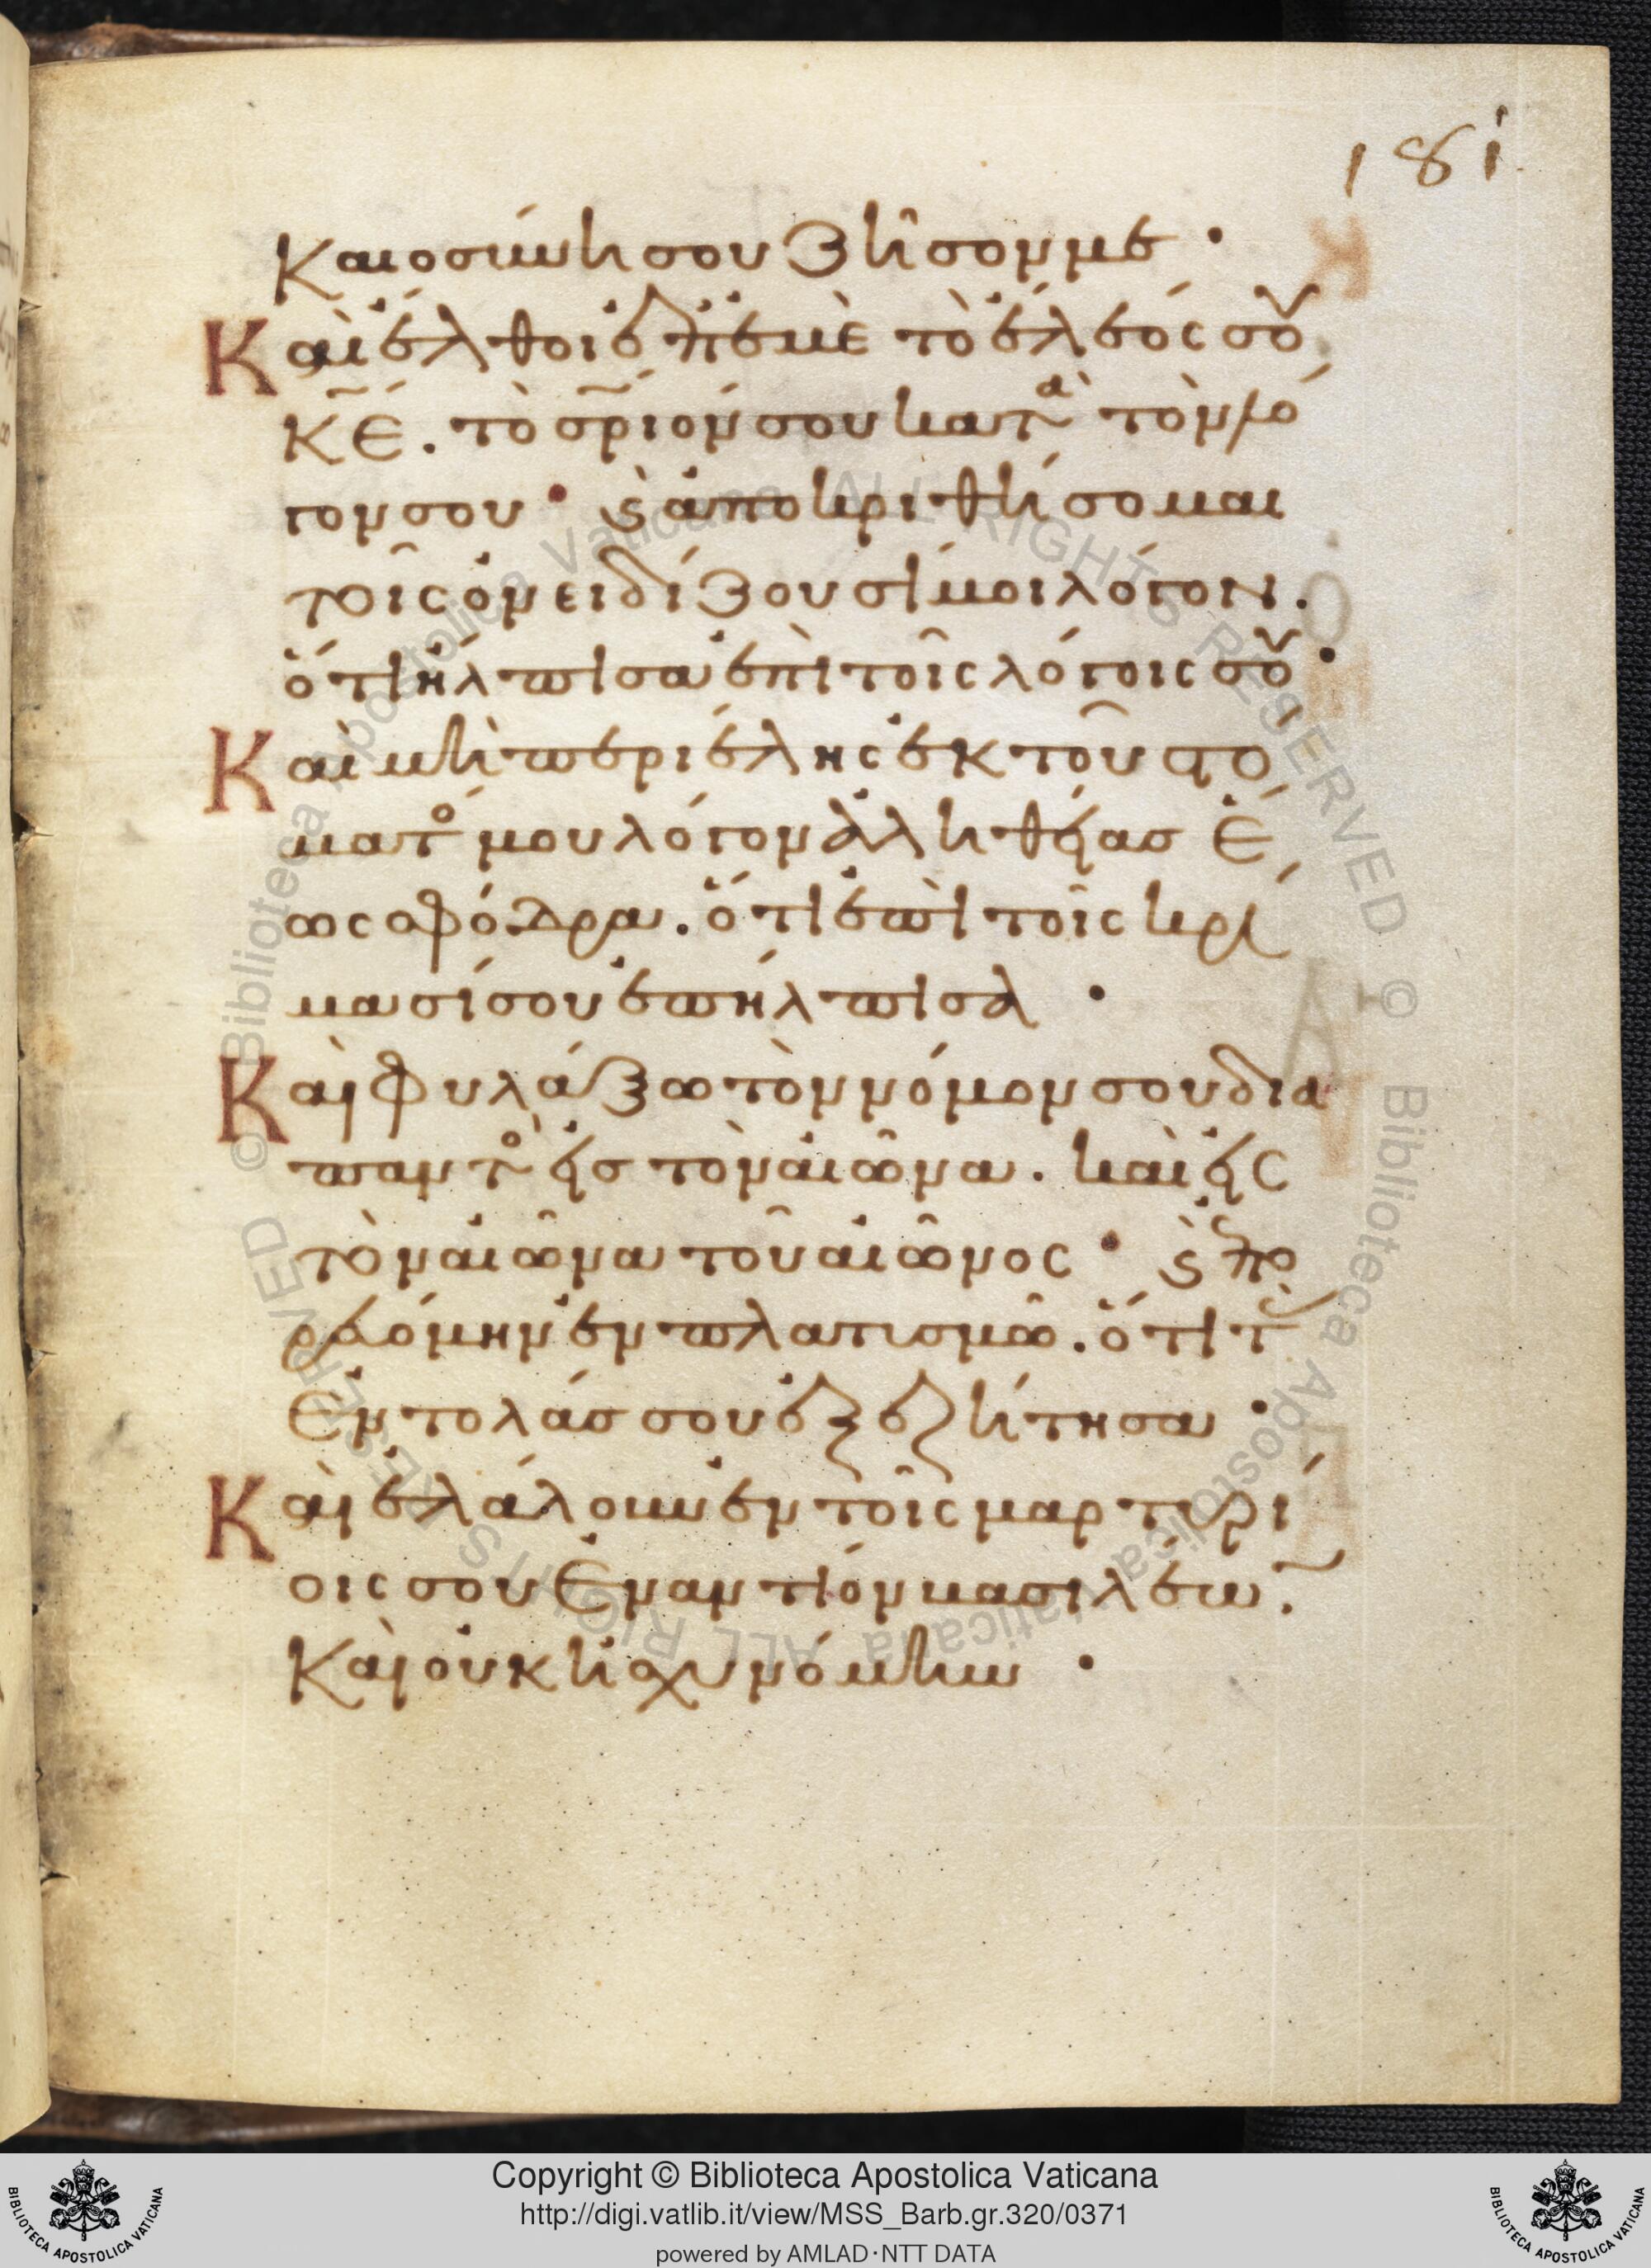 181
καιοσύνη σου ζῆσόν με·
Καὶ ἔλθοι ἐπ' ἐμὲ τὸ ἔλεός σου,
κ̅ε̅. τὸ σ̅ρ̅ιόν σου κατὰ τὸν λό
γον σου· ϗ ἀποκριθήσομαι
τοῖς ὀνειδίζουσί μοι λόγον.
ὅτι ἤλπισα ἐπὶ τοῖς λόγοις σου·
Καὶ μὴ περιέλῃς ἐκ τοῦ στό
ματός μου λόγον ἀληθείας ἕ
ως σφόδρα. ὅτι ἐπὶ τοῖς κρί
μασί σου ἐπήλπισα·
Καὶ φυλάξω τὸν νόμον σου δια
παντὸς εἰς τὸν αἰῶνα. καὶ εἰς
τὸν αἰῶνα τοῦ αἰῶνος· ϗ ἐπο
ρευόμην ἐν πλατυσμῶ. ὅτι τὰς
ἐντολάς σου ἐξεζήτησα·
Καὶ ἐλάλουν ἐν τοῖς μαρτυρί
οις σου ἐναντίον βασιλέων.
καὶ οὐκ ἠσχυνόμην·
Copyright © Biblioteca Apostolica Vaticana
http://digi.vatlib.it/view/MSS_Barb.gr.320/0371
powered by AMLAD·NTT DATA
BIBLIOTECA APOSTOLICA VATICANA
BIBLIOTECA APOSTOLICA VATICANA
© Biblioteca Apostolica Vaticana ALL RIGHTS RESERVED © Biblioteca Apostolica Vaticana ALL RIGHTS RESERVED